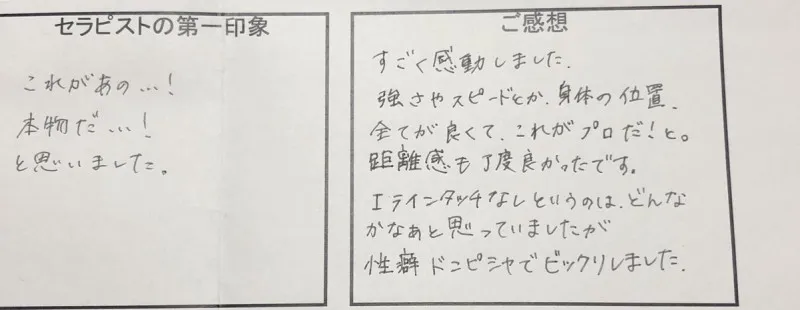 セラピストの第一印象
これがあの…！
本物だ…！
と思いました。
ご感想
すごく感動しました.
強さやスピードとか、身体の位置、
全てが良くて、これがプロだ！と。
距離感も丁度良かったです。
Iラインタッチなしというのは、どんな
かなぁと思っていましたが
性癖ドンピシャでビックリしました.